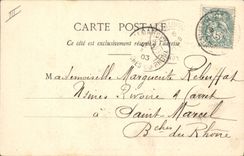 CARTE POSTALE
Ce côté est exclusivement réservé à l'adresse
03
Mademoiselle Marguerite Rebuffat
Usines Rivoire & Carret
à Saint Marcel
Bches du Rhône